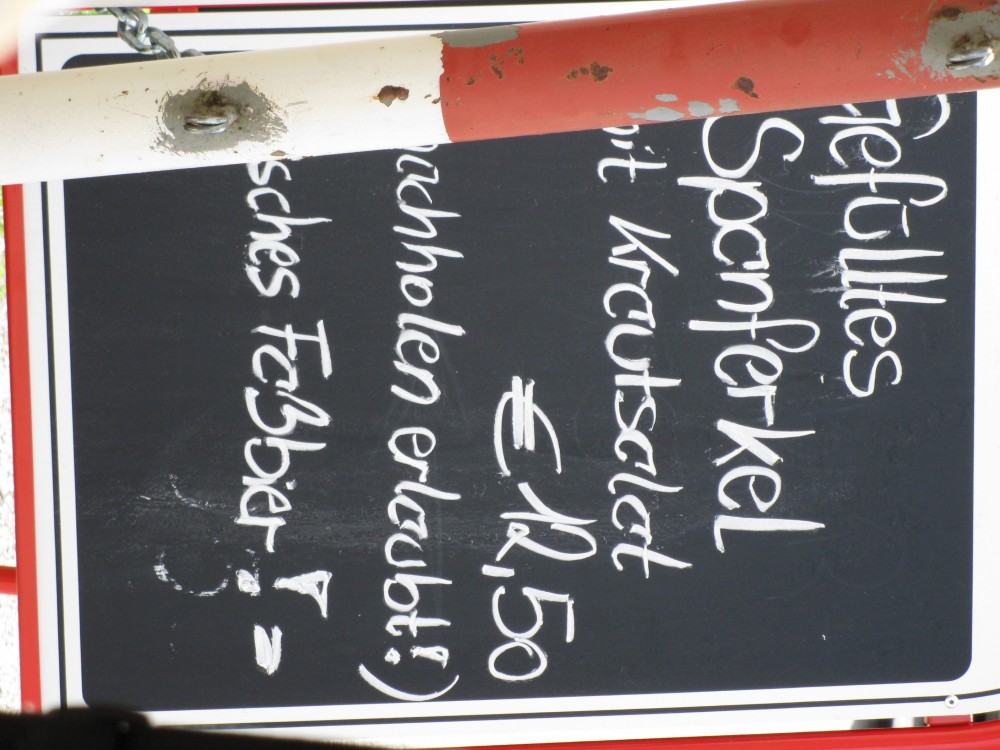 Gefülltes
Spanferkel
mit Krautsalat
€ 12,50
nachholen erlaubt!)
sches Faßbier! =